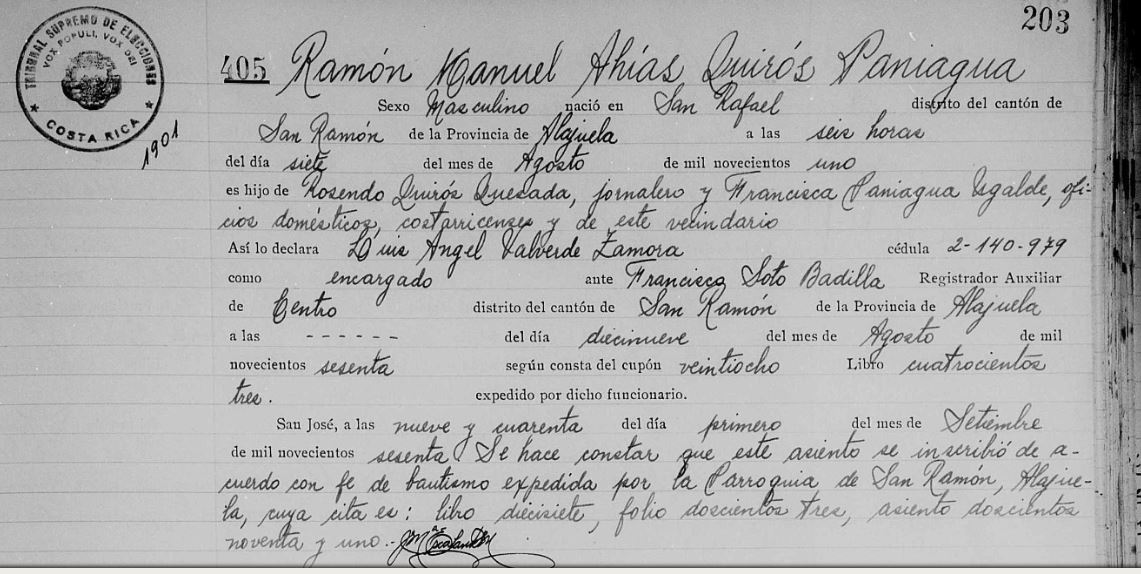 203
TRIBUNAL SUPREMO DE ELECCIONES
VOX POPULI, VOX DEI
COSTA RICA
1901
405 Ramón Manuel Ahías Quirós Paniagua
Sexo Masculino nació en San Rafael distrito del cantón de
San Ramón de la Provincia de Alajuela a las seis horas
del día siete del mes de Agosto de mil novecientos uno
es hijo de Rosendo Quirós Quesada, jornalero y Francisca Paniagua Ugalde, ofi-
cios domésticos, costarricenses y de este vecindario
Así lo declara Luis Angel Valverde Zamora cédula 2-140-979
como encargado ante Francisca Soto Badilla Registrador Auxiliar
de Centro distrito del cantón de San Ramón de la Provincia de Alajuela
a las - - - - - - del día diecinueve del mes de Agosto de mil
novecientos sesenta según consta del cupón veintiocho Libro cuatrocientos
tres. expedido por dicho funcionario.
San José, a las nueve y cuarenta del día primero del mes de Setiembre
de mil novecientos sesenta Se hace constar que este asiento se inscribió de a-
cuerdo con fe de bautismo expedida por la Parroquia de San Ramón, Alajue-
la, cuya cita es: libro diecisiete, folio doscientos tres, asiento doscientos
noventa y uno.-